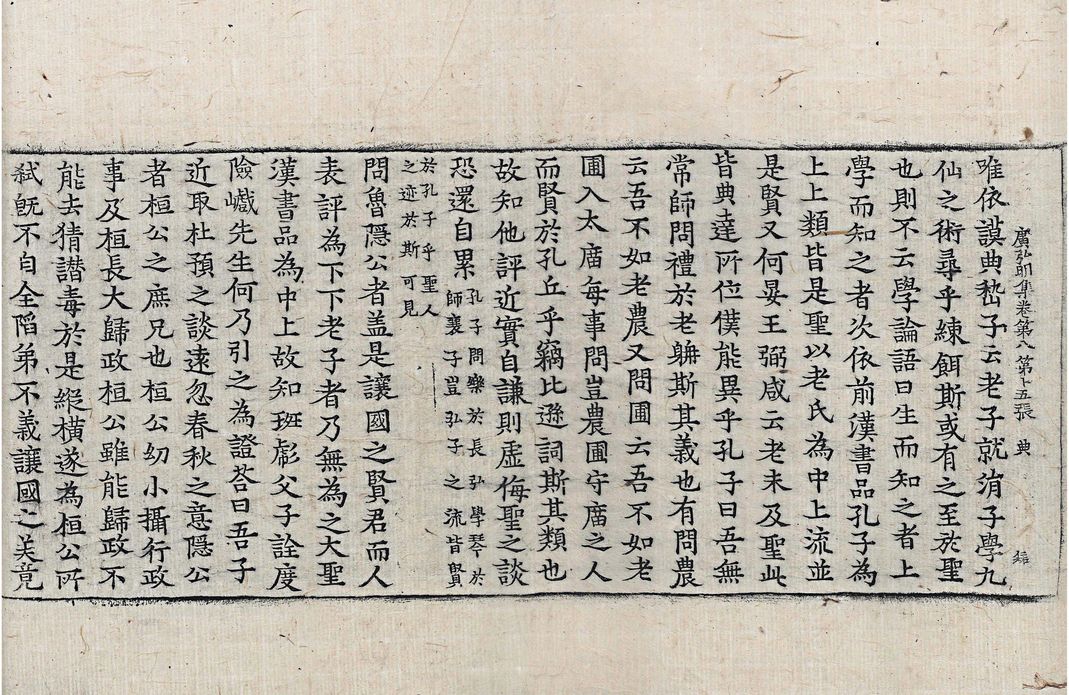 廣弘明集卷第八 第十五張 典
唯依謨典嵇子云老子就涓子學九
仙之術尋乎練餌斯或有之至於聖
也則不云學論語曰生而知之者上
學而知之者次依前漢書品孔子為
上上類皆是聖以老氏為中上流並
是賢又何晏王弼咸云老未及聖此
皆典達所位僕能異乎孔子曰吾無
常師問禮於老聃斯其義也有問農
云吾不如老農又問圃云吾不如老
圃入太庿每事問豈農圃守庿之人
而賢於孔丘乎竊比遜詞斯其類也
故知他評近實自謙則虛侮聖之談
恐還自累孔子問樂於長弘學琴於
師襄子豈弘子之流皆賢
於孔子乎聖人
之迹於斯可見
問魯隱公者盖是讓國之賢君而人
表評為下下老子者乃無為之大聖
漢書品為中上故知班彪父子詮度
險巇先生何乃引之為證荅曰吾子
近取杜預之談遠忽春秋之意隱公
者桓公之庶兄也桓公幼小攝行政
事及桓長大歸政桓公雖能歸政不
能去猜譖毒於是縱橫遂為桓公所
弒旣不自全陷弟不義讓國之美竟